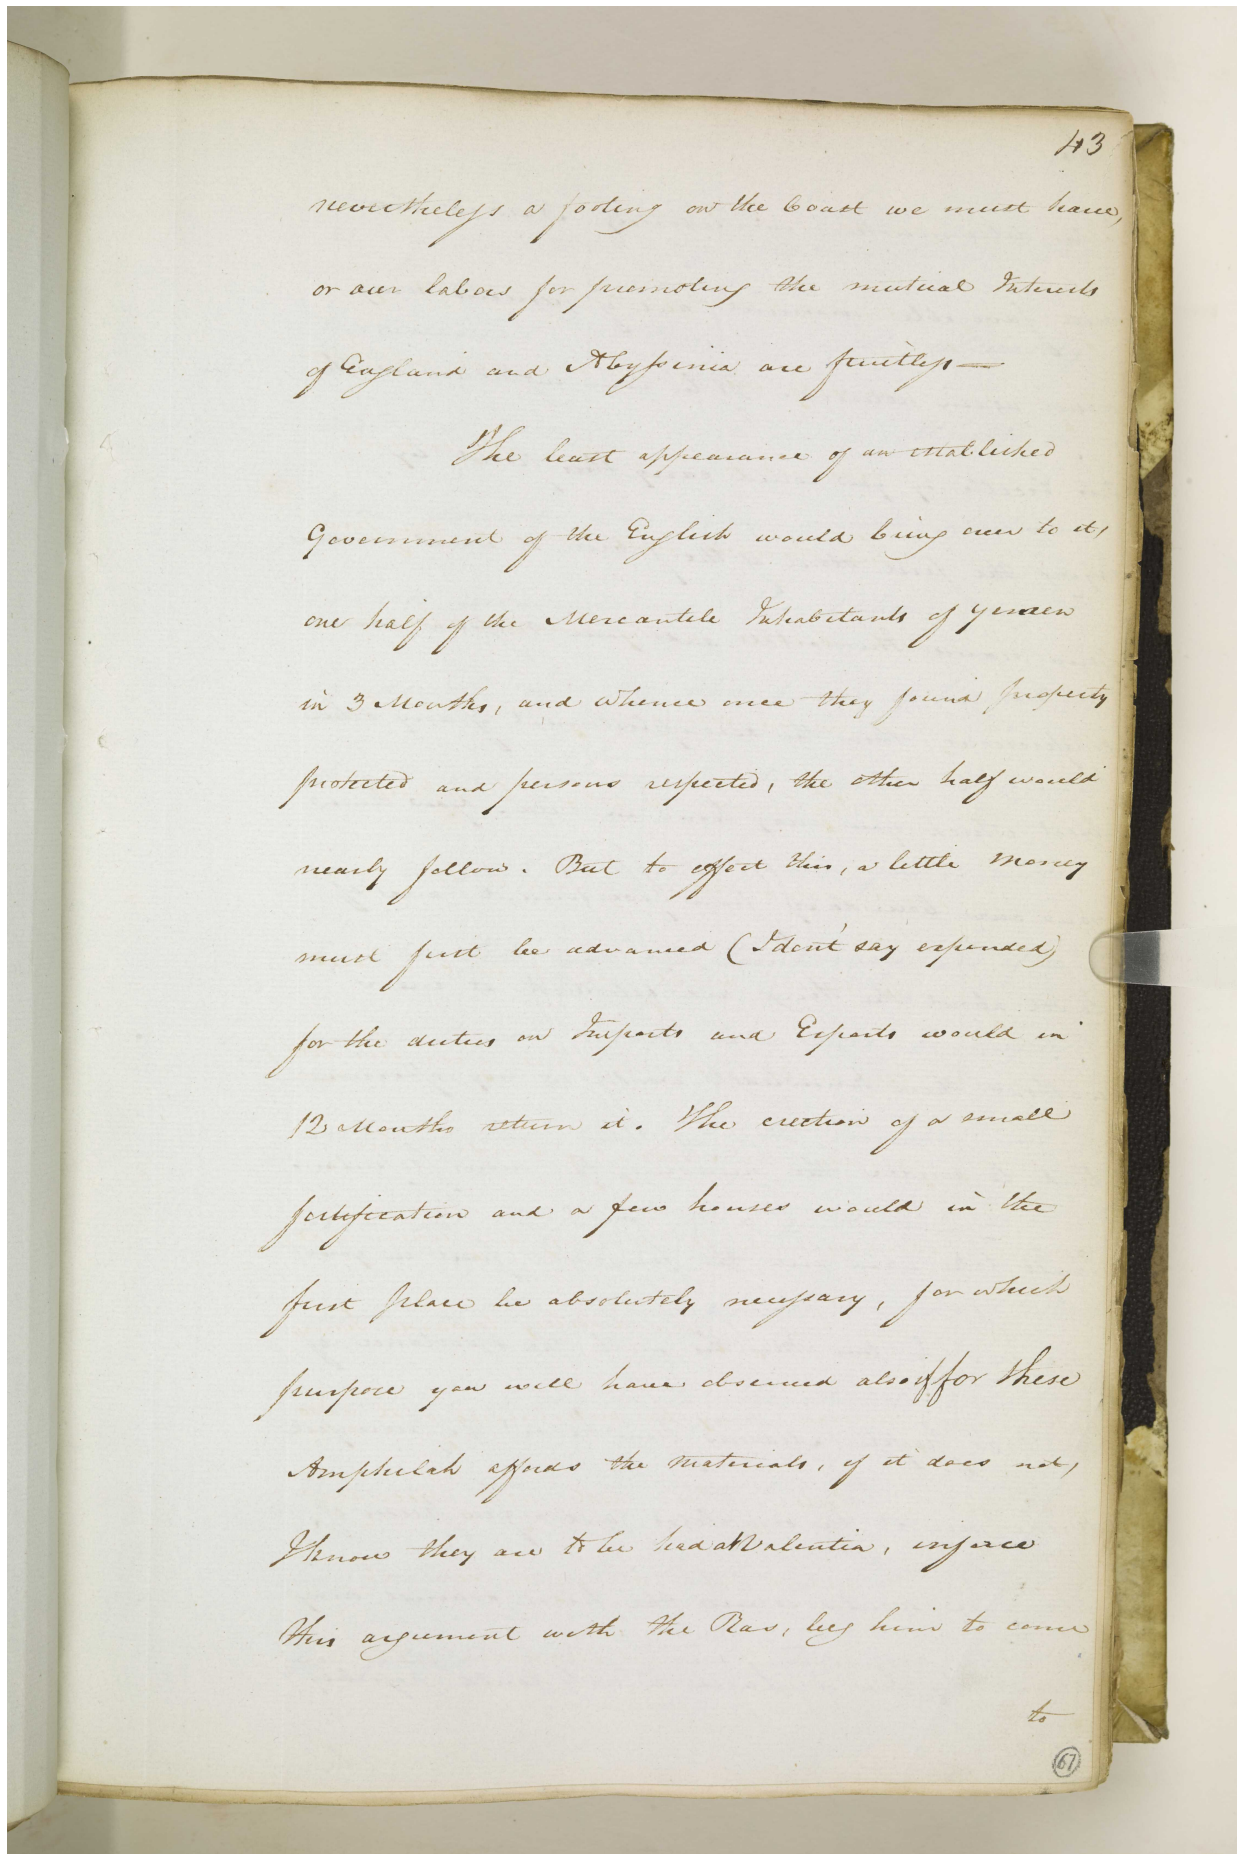 43
nevertheless a footing on the Coast we must have,
or our labors for promoting the mutual Interests
of England and Abyssinia are fruitless —
The least appearance of an established
Government of the English would bring over to it,
one half of the Mercantile Inhabitants of Yemen
in 3 Months, and whence once they found property
protected and persons respected, the other half would
nearly follow. But to effect this, a little Money
must first be advanced (I dont say expended)
for the duties on Imports and Exports would in
12 Months return it. The erection of a small
fortification and a few houses would in the
first place be absolutely necessary, for which
purpose you will have observed also if for these
Amphilah affords the Materials, if it does not,
I know they are to be had at Valentia, inforce
this argument with the Ras, beg him to come
to
67